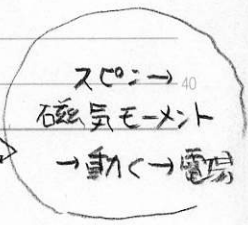 スピン→
40
磁気モーメント
→動く→電場